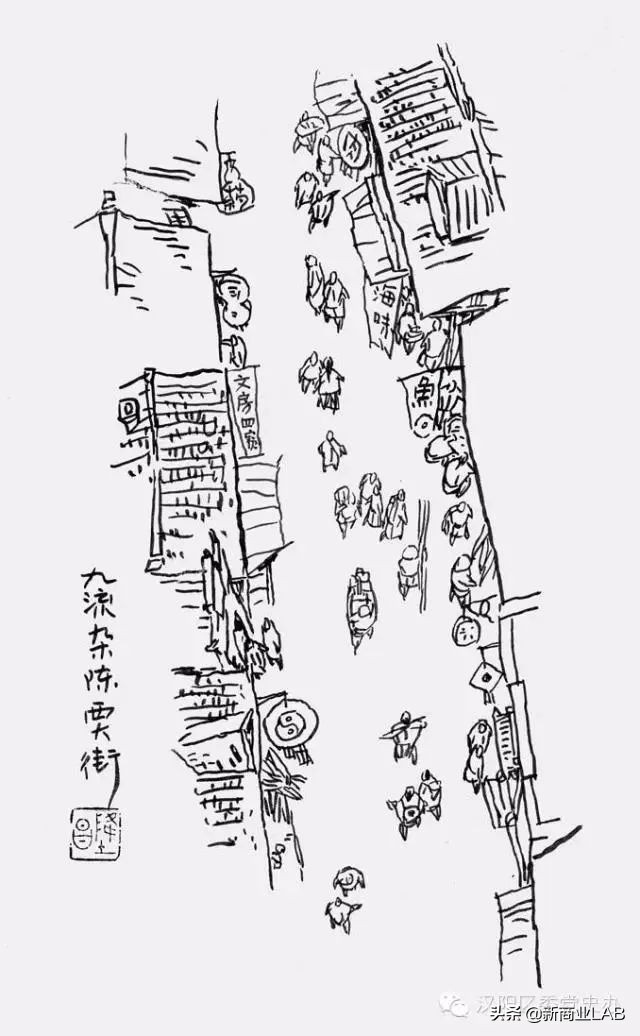 海味
文房四宝
九流杂陈贾街
汉阳区委党史办
头条 @新商业LAB